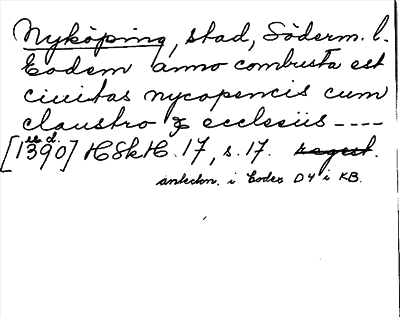 Nyköping, stad, Söderm. l.
Eodem anno combusta est
ciuitas nycopencis cum
claustro & ecclesiis ----
[1390] HSkH. 17, s. 17. regest.
anteckn. i Codex D4 i KB.